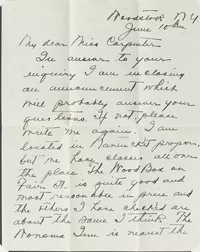 Woodstock N.Y.
June 10th
My dear Miss Carpenter
In answer to your
inquiry I am inclosing
an announcement which
will probably answer your
questions. If not, please
write me again. I am
located in Nantucket proper
but we have classes all over
the place. The Wood Box on
Fair St. is quite good and
most reasonable in price and
the others I have checked are
about the same I think. The
Nonoma Inn is nearest the